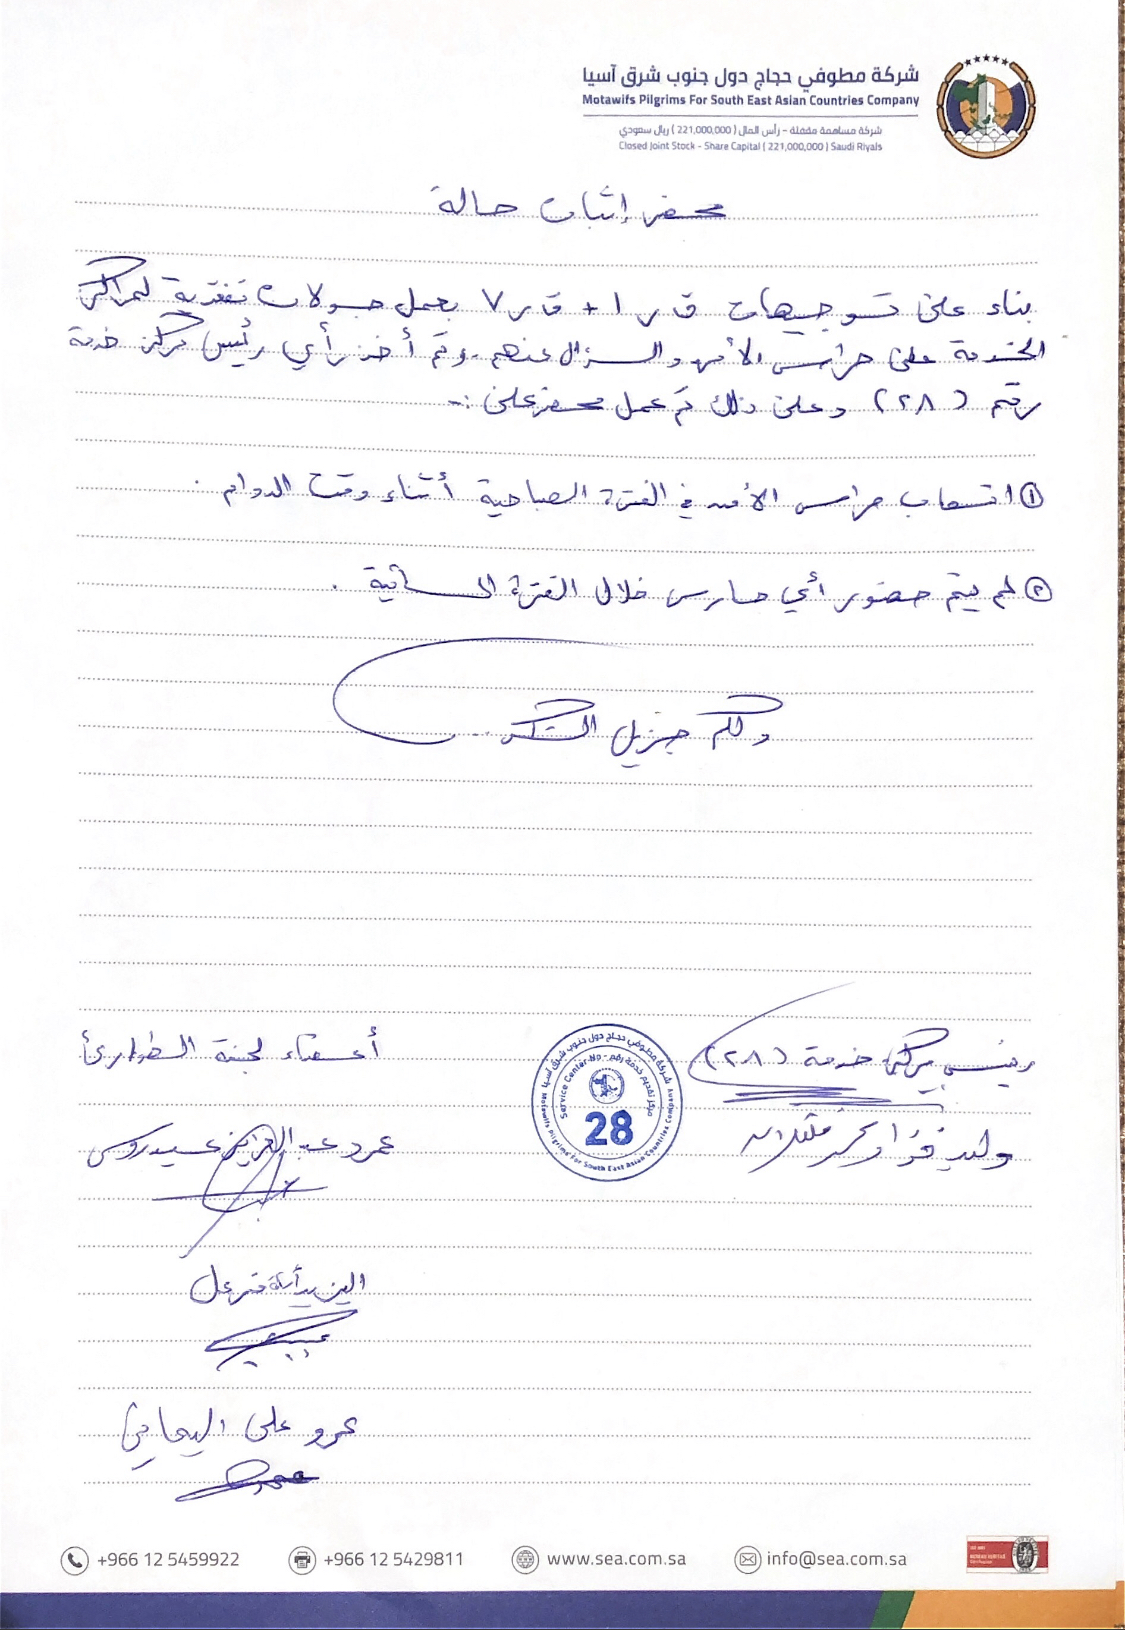 شركة مطوفي حجاج دول جنوب شرق آسيا
Motawifs Pilgrims For South East Asian Countries Company
شركة مساهمة مقفلة - رأس المال ( 221,000,000 ) ريال سعودي
Closed Joint Stock - Share Capital ( 221,000,000 ) Saudi Riyals
محضر إثبات حالة
بناء على توجيهات ق ر ١ + ق ر ٧ بعمل جولات تفقدية لمراكز
الخدمة على حراس الأمن والسؤال عنهم. وتم أخذ رأي رئيس مركز خدمة
رقم (٢٨) وعلى ذلك تم عمل محضر على :-
① انسحاب حراس الأمن في الفترة الصباحية أثناء وقت الدوام .
② لم يتم حضور أي حارس خلال الفترة المسائية .
ولكم جزيل الشكر ..
رئيس مركز خدمة (٢٨)
أعضاء لجنة الطوارئ
شركة مطوفي حجاج دول جنوب شرق آسيا
مركز تقديم خدمة رقم - Service Center No
28
Motawifs Pilgrims For South East Asian Countries Company
وليد فؤاد
عمرو عبدالعزيز عيدروس
عمرو علي اليماني
+966 12 5459922
+966 12 5429811
www.sea.com.sa
info@sea.com.sa
BUREAU VERITAS